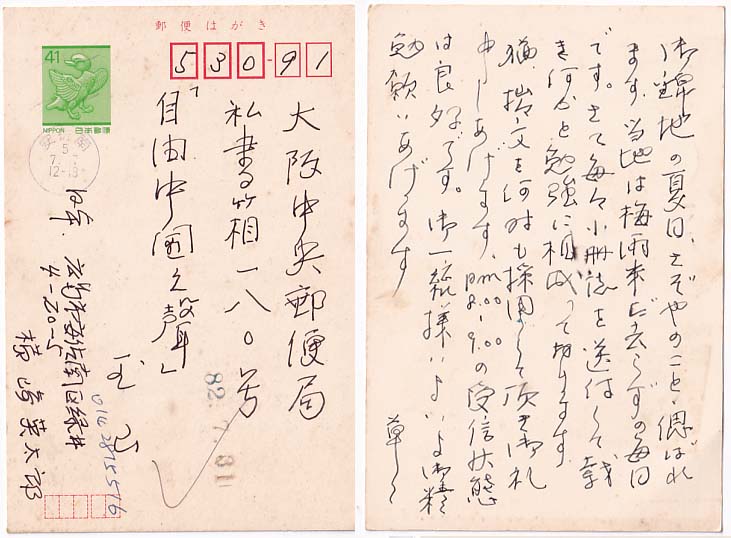 郵便はがき
530-91
41
NIPPON 日本郵便
5
7. 7
12-18
大阪中央郵便局
私書箱一八〇号
「自由中國之聲」
玉
日本.
4-20-5
太郎
82. 7. 31
御錦地の夏日、さぞやのこと偲ばれ
ます。当地は梅雨末だ去らずの毎日
です。さて毎々小冊誌を送付して戴
き何かと勉強に相成って居ります。
猶、拙文を何時も採用して頂き御礼
申しあげます。PM 8.00-9.00の受信状態
は良好です。御一統様によ
願いあげます
草々